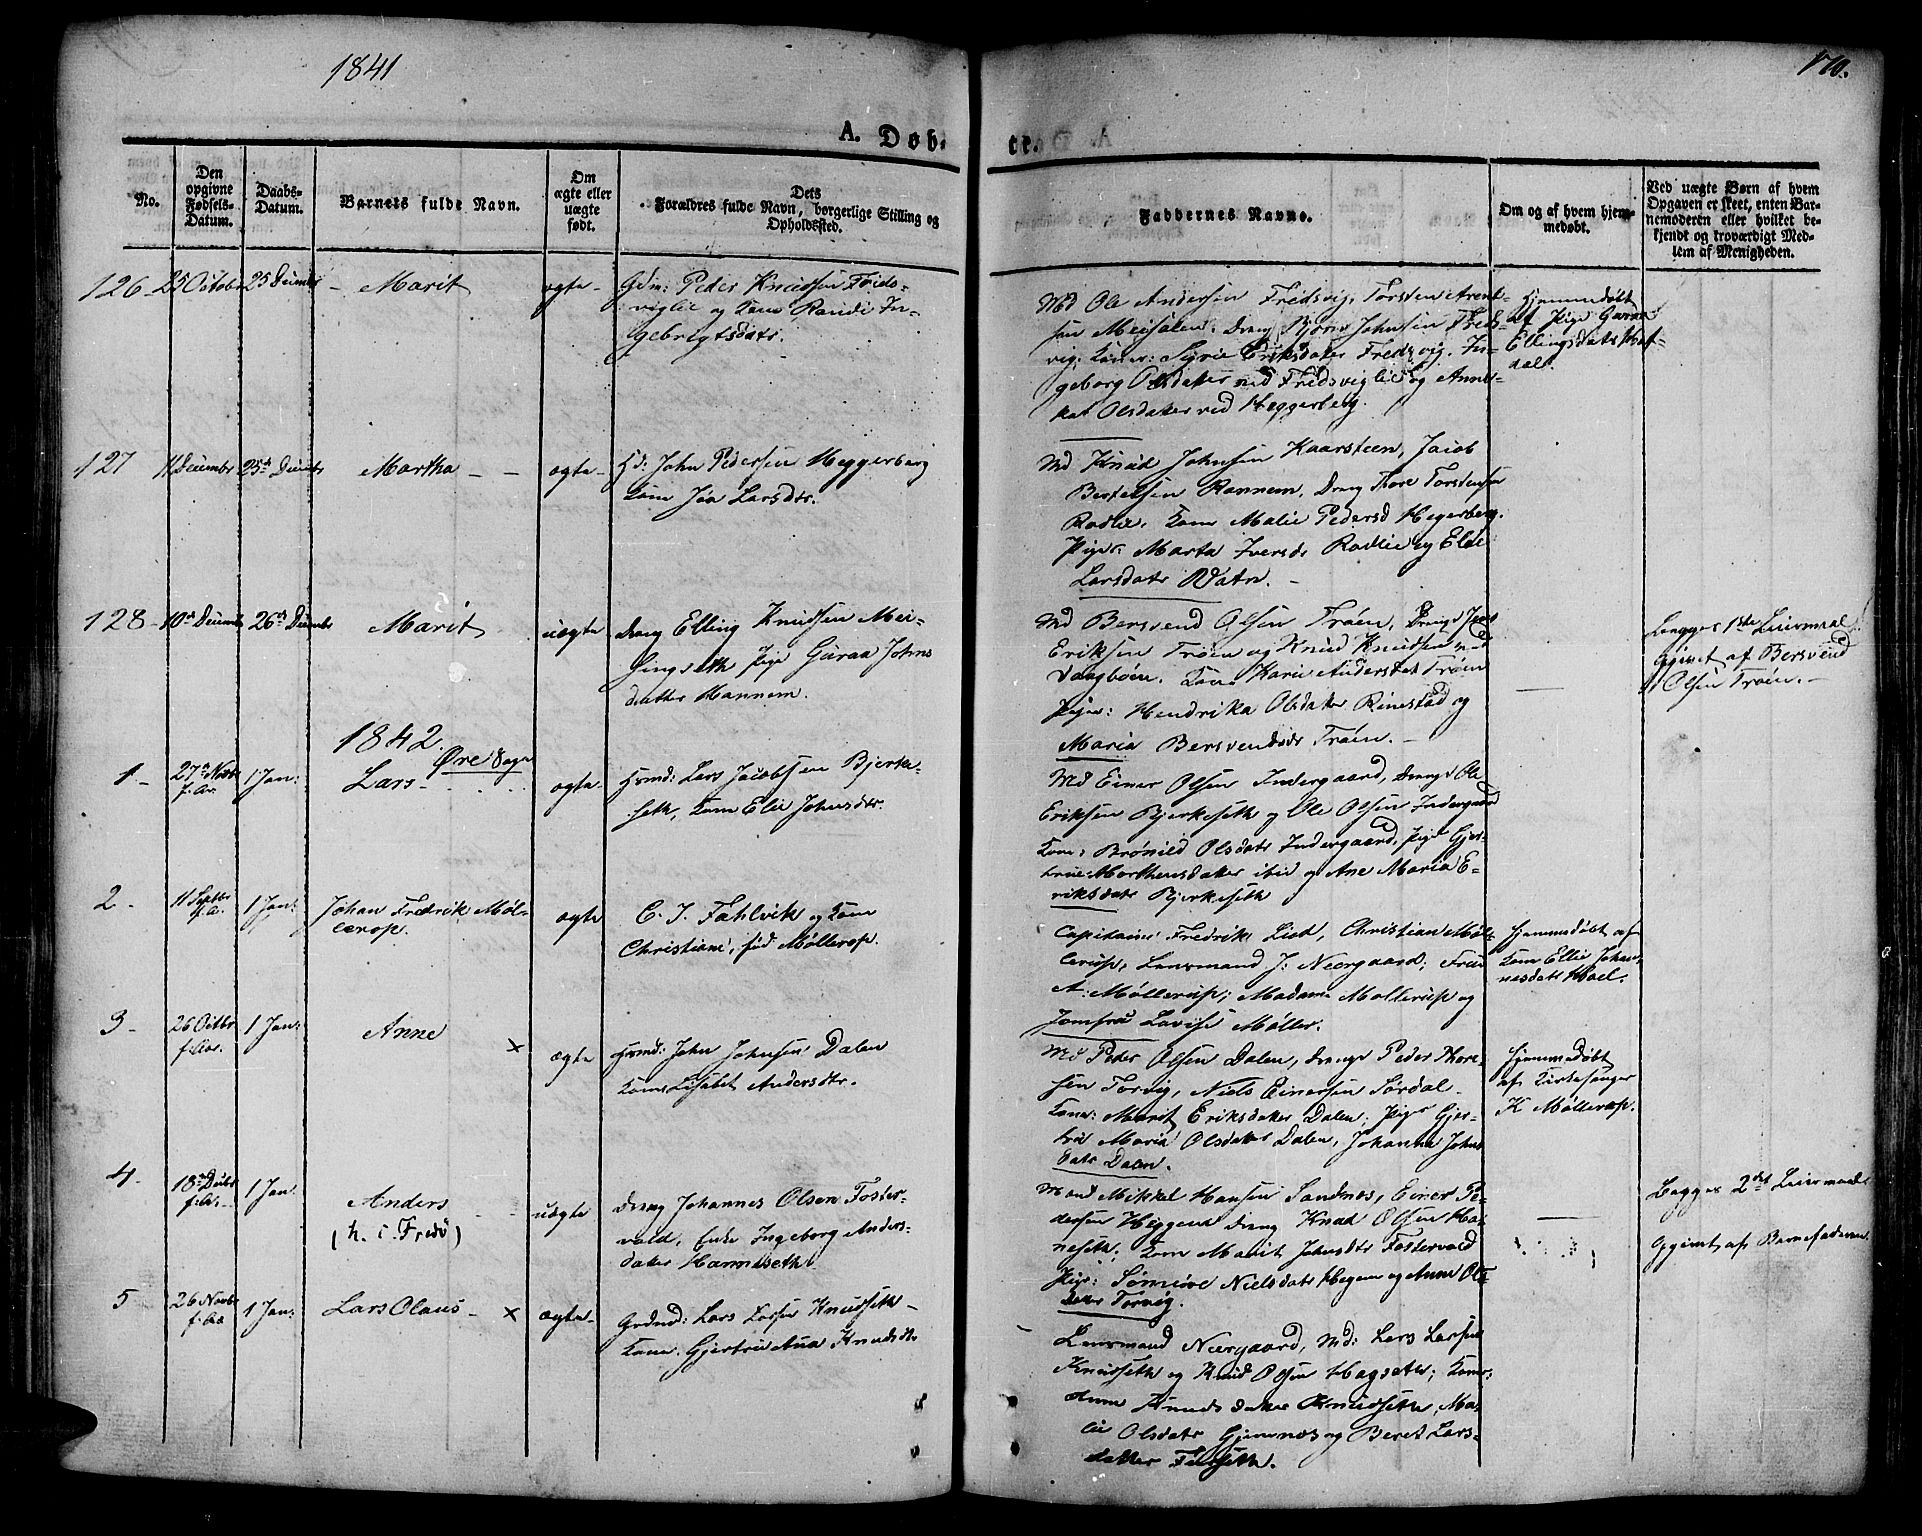 1841
170.
A. Døb-
te.
No.
Den
opgivne
Fødsels-
Datum.
Daabs-
Datum.
Barnets fulde Navn.
Om
ægte eller
uægte
født.
Dets
Forældres fulde Navn, borgerlige Stilling og
Opholdssted.
Faddernes Navne.
Om og af hvem hjem-
medøbt.
Ved uægte Børn af hvem
Opgaven er skeet, enten Bar-
nemoderen eller hvilket be-
kjendt og troværdigt Med-
lem af Menigheden.
126- 25 Octobr 25 Decembr - Marit ægte-
Gdm: Peder Knudsen Freds-
viglie og Kone Randi In-
gebrigtsdatr.
Md Ole Andersen Fredsvig, Torsten Arent-
sen Meisalen. Dreng Johnsen Freds-
vig; Koner: Sigrie Eriksdatter Fredsvig. In-
geborg Olsdatter ved Fredsviglie og Anne-
Olsdatter ved Heggerberg.
Hjemmedøbt
af Pige Guraa
Ellingsdatr
dal.
127 11 Decembr 25de Decembr Martha - - ægte-
Hd: John Pedersen Heggerberg
Kone Larsdtr.
Md Knud Johnsen Kaarsteen, Jacob
Bertelsen Rannem, Dreng Thore Torstensen
Rodlie. Kone Malie Pedersd Hegerberg.
Piger: Marta Iversdr Rodlie og Elie
Larsdatr Vatn. -
128- 10de Decembr 26de Decembr Marit uægte
Dreng Elling Knudsen Mei-
singseth Pige Guraa Johns
datter Hannem.
Md Bersvend Olsen Trøen, Drenge
Eriksen Trøen og Knud Knudsen ved
Vaagbøen. Kone Karie Andersdat Trøen
Piger: Hendrika Olsdatter Rinestad og
Maria Bersvendsdr Trøen. -
Begges 1ste Leiermaal
Opgivet af Bersvend
Olsen Trøen. -
1842.
Øre Sogn
1- 27de Novbr f. Aar 1 Jan: Lars- ægte-
Hsmd: Lars Jacobsen Bjerke-
seth, Kone Elie Johnsdtr.
Md Einer Olsen Indergaard, Drenge Ole
Eriksen Bjerkeseth og Ole Olsen Indergaard
Kone: Brønild Olsdatr Indergaard, Pige Gjer-
true Morthensdatter ibid og Ane Maria E-
riksdatr Bjerkeseth
2- 11 Septbr f. A. 1 Jan: Johan Fredrik Møl-
lerop. ægte
C. J. Fahlvik og Kone
Christiane, fød Møllerop.
Capitaine Fredrik Lied, Christian Møl-
lerup, Lensmand J: Neergaard; Frue
A: Møllerup; Madame Møllerup og
Jomfru Lovise Møller.
Hjemmedøbt af
Kone Ellie Johan-
nesdatr Hoel.
3- 26 Octbr f. Aar. 1 Jan: Anne × ægte
Hsmd: John Johnsen Dalen
Kone Lisabet Andersdtr.
Md Peder Olsen Dalen, Drenge Peder Thore-
sen Torvig, Niels Einersen Sørdal.
Koner: Marit Eriksdatter Dalen; Piger Gjer-
true Maria Olsdatter Dalen, Johanna Johns
datr Dalen.
Hjemmedøbt
af Kirkesanger
K Møllerop.
4- 18de Decbr f. A. - 1 Jan Anders - - uægte
(h. i Fredø)
Dreng Johannes Olsen Foster-
vold, Enke Ingeborg Anders-
datter Harridseth
Mænd Mikkel Hansen Sandnes, Einer Pe-
dersen Heggem Dreng Knud Olsen
neseth. Kone Marit Johnsdtr Fostervold
Piger: Sømiøve Nielsdatr Hegem og Anne Ols
datter Torvig.
Begges 2det Leiermaal
Opgivet af Barnefaderen
5 26 Novbr f. Aar 1 Jan: Lars Olaus- × ægte-
Grdmd: Lars Larsen Knudseth -
Kone. Gjertrue Ana Knudsdtr
Lensmand Neergaard, Md: Lars Larsen
Knudseth og Knud Olsen Hagseter; Koner:
Anne Knudsdatter Knudseth, Ma-
lie Olsdatr Gjemnæs og Beret Lars-
datter Fuseth.